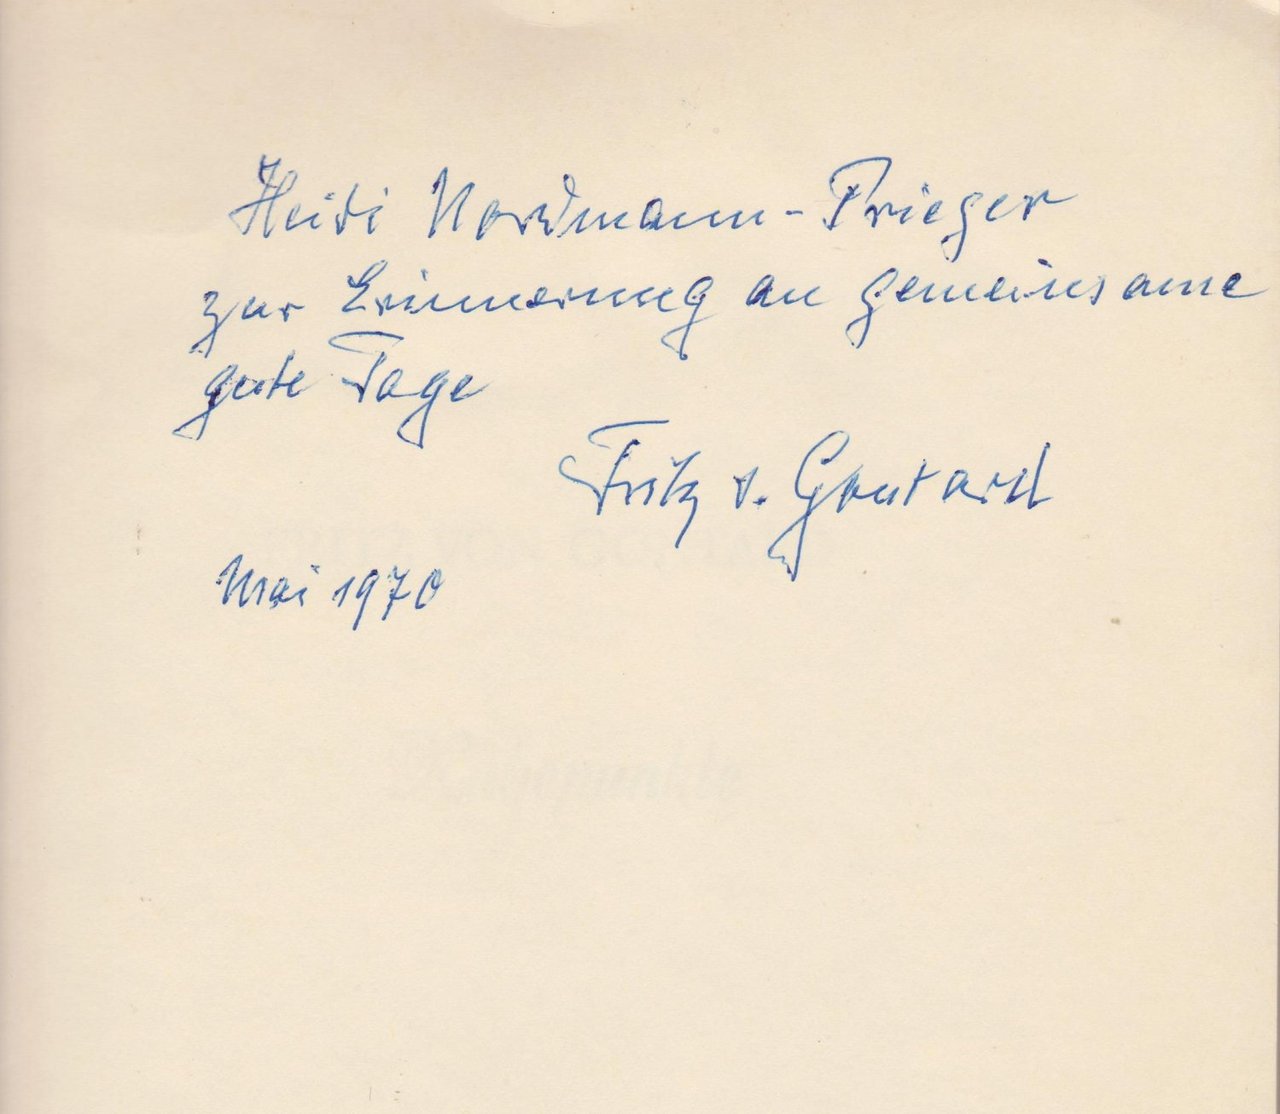 Heidi Nordmann-Prieger
zur Erinnerung an gemeinsame
gute Tage
Fritz v. Gontard
Mai 1970